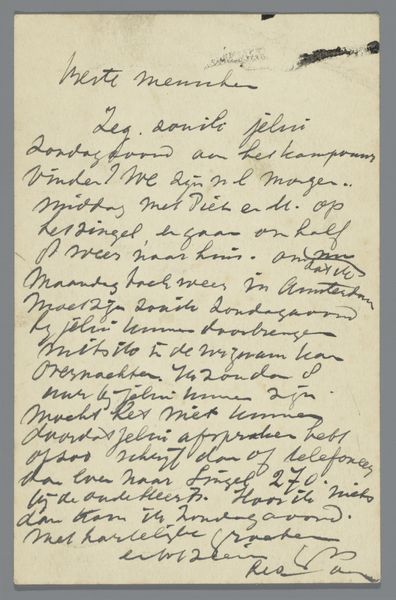 Beste menschen
Zeg. zouik jelui
Zondagavond aan het kampvuur
vinden? We zijn nl morgen..
middag met Piet en M. op
het Singel, en gaan om half
weer naar huis. omdat ik
Maandag toch weer in Amsterdam
moet zijn zou ik Zondagavond
bij jelui kunnen doorbrengen
mits ik in de wigwam kan
overnachten. Ik zou dan 8
uur bij jelui kunnen zijn.
Mocht het niet kunnen
doordat jelui afspraken hebt
of zoo schrijf dan of telefoneer
dan even naar Singel 270.
bij de oude Heer. Hoor ik niets
dan kom ik Zondagavond.
Met hartelijke groeten
en tot ziens